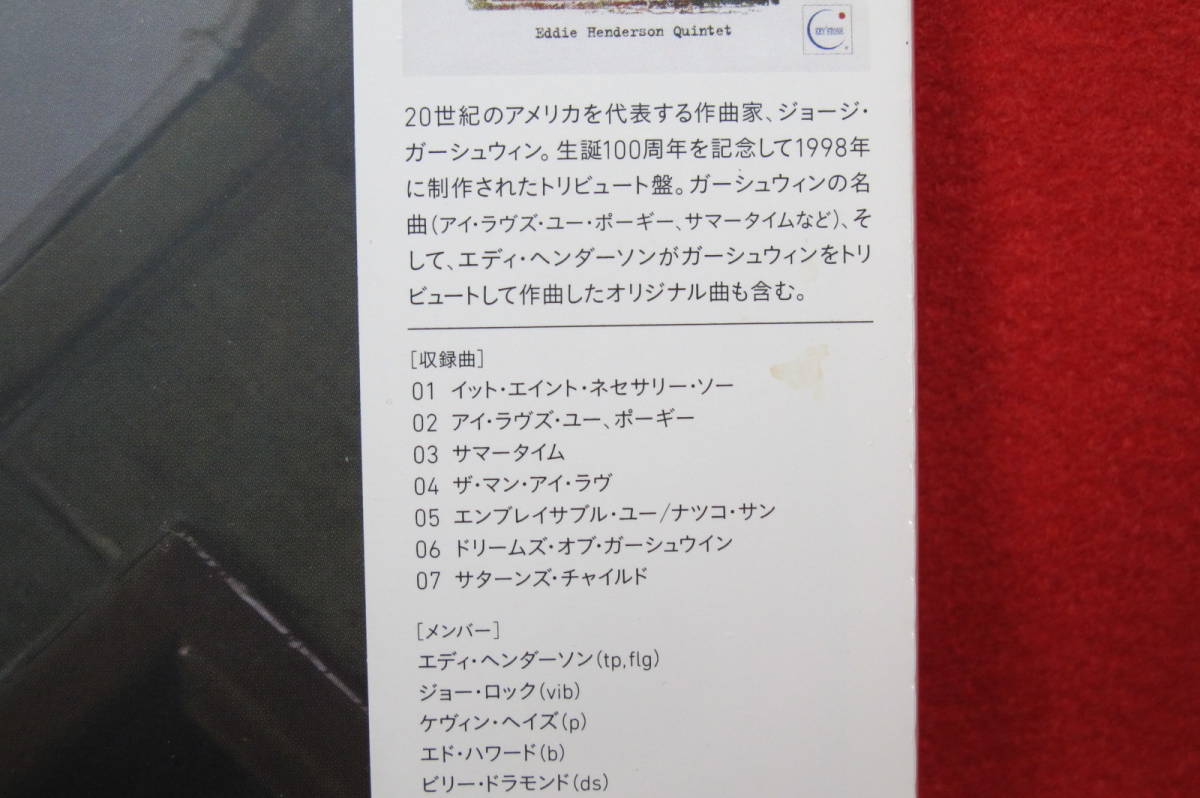 Eddie Henderson Quintet
KEY'STONE
20世紀のアメリカを代表する作曲家、ジョージ・
ガーシュウィン。生誕100周年を記念して1998年
に制作されたトリビュート盤。ガーシュウィンの名
曲(アイ・ラヴズ・ユー・ポーギー、サマータイムなど)、そ
して、エディ・ヘンダーソンがガーシュウィンをトリ
ビュートして作曲したオリジナル曲も含む。
[収録曲]
01 イット・エイント・ネセサリー・ソー
02 アイ・ラヴズ・ユー、ポーギー
03 サマータイム
04 ザ・マン・アイ・ラヴ
05 エンブレイサブル・ユー/ナツコ・サン
06 ドリームズ・オブ・ガーシュウイン
07 サターンズ・チャイルド
[メンバー]
エディ・ヘンダーソン(tp,flg)
ジョー・ロック(vib)
ケヴィン・ヘイズ(p)
エド・ハワード(b)
ビリー・ドラモンド(ds)